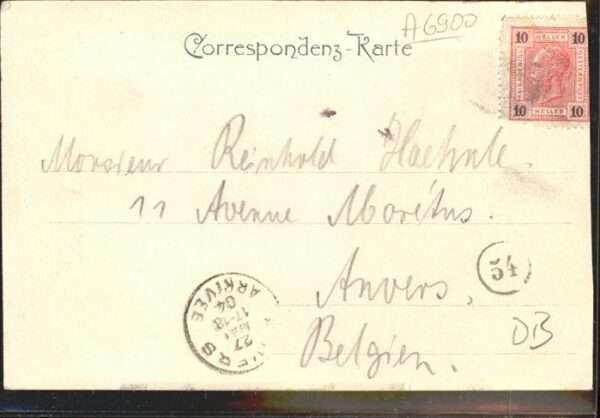 A6900
Correspondenz-Karte
10 HELLER 10
10 HELLER 10
Monsieur Reinhold Haehnle.
11 Avenue Morétus.
Anvers,
Belgien.
54
DB
ANVERS
ARRIVEE
04
17-18
MAI
27